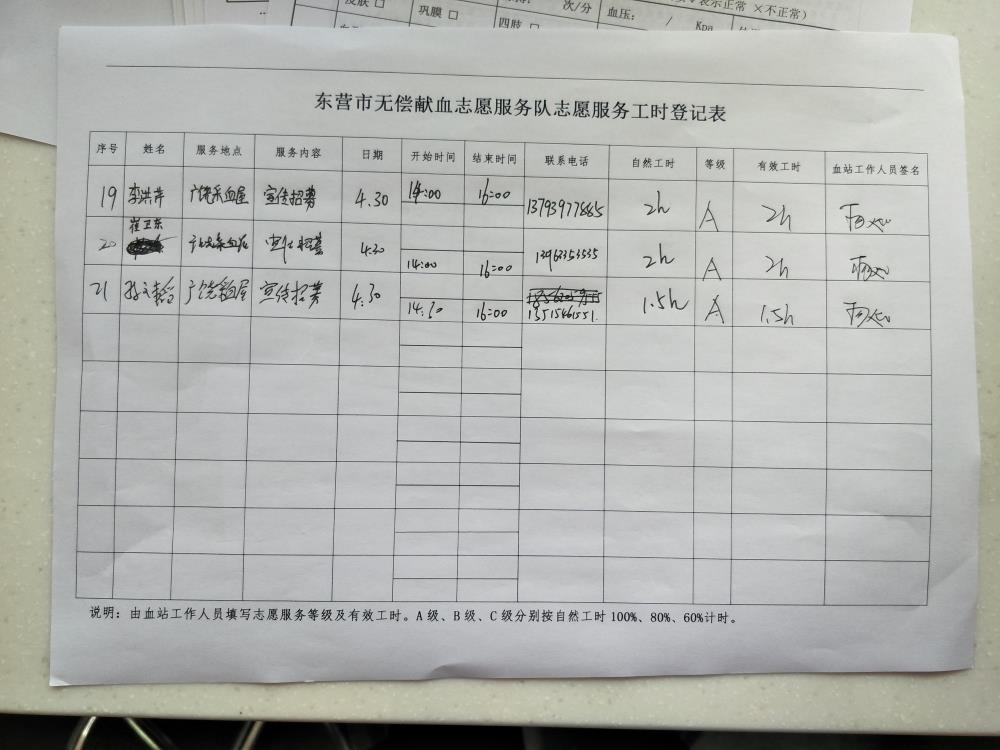 皮肤 □
巩膜 □
次/分
四肢 □
血压： / Kpa
表示正常 ×不正常）
东营市无偿献血志愿服务队志愿服务工时登记表
序号 姓名 服务地点 服务内容 日期 开始时间 结束时间 联系电话 自然工时 等级 有效工时 血站工作人员签名
19 李洪芹 广饶采血屋 宣传招募 4.30 14:00 16:00 13793977885 2h A 2h
20 崔卫东 4.30 14:00 16:00 13963353535 2h A 2h
21 广饶采血屋 宣传招募 4.30 14:30 16:00 13515461551 1.5h A 1.5h
说明：由血站工作人员填写志愿服务等级及有效工时。A 级、B 级、C 级分别按自然工时 100%、80%、60%计时。